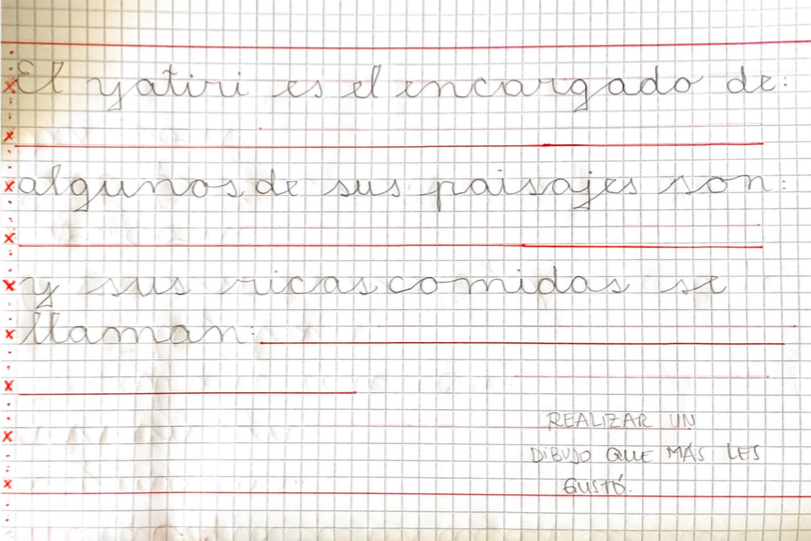 El yatiri es el encargado de:
algunos de sus paisajes son:
y sus ricas comidas se
llaman:
REALIZAR UN
DIBUJO QUE MÁS LES
GUSTÓ.